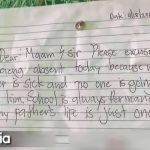 Dear Maam & sir Please excuse
being absent today because
is sick and no one is going
him. School is always perman
my father's life is just one
ia